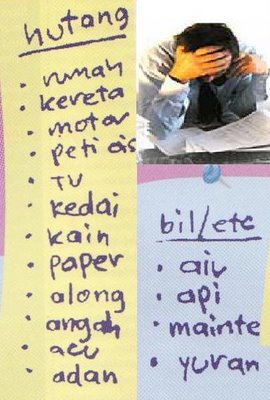 hutang
• rumah
• kereta
• motor
• peti ais
• TV
• kedai
• kain
• paper
• along
• angah
• acu
• adan
bil/etc
• air
• api
• mainte
• yuran